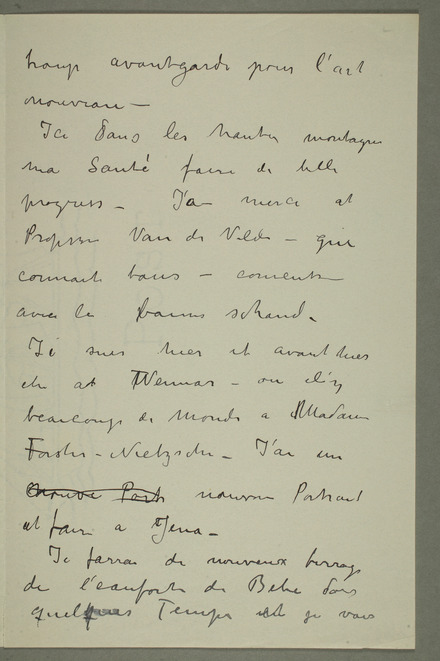 troup avantgarde pour l'art
nouveau —
Ici dans les hautes montagnes
ma Santé faire de belle
progress — J'ai merci at
Professor Van de Velde — qui
connait tous —
avec le
Je suis hier et avant hier
ete at Weimar — ou il y
beaucoup de Monde a Madam
Förster-Nietzsche — J'ai un
nouveau Portrait
at faire a Jena —
Je farrai de nouveaux
de l'eauforte de Bebe dans
quelques Temps et je vous